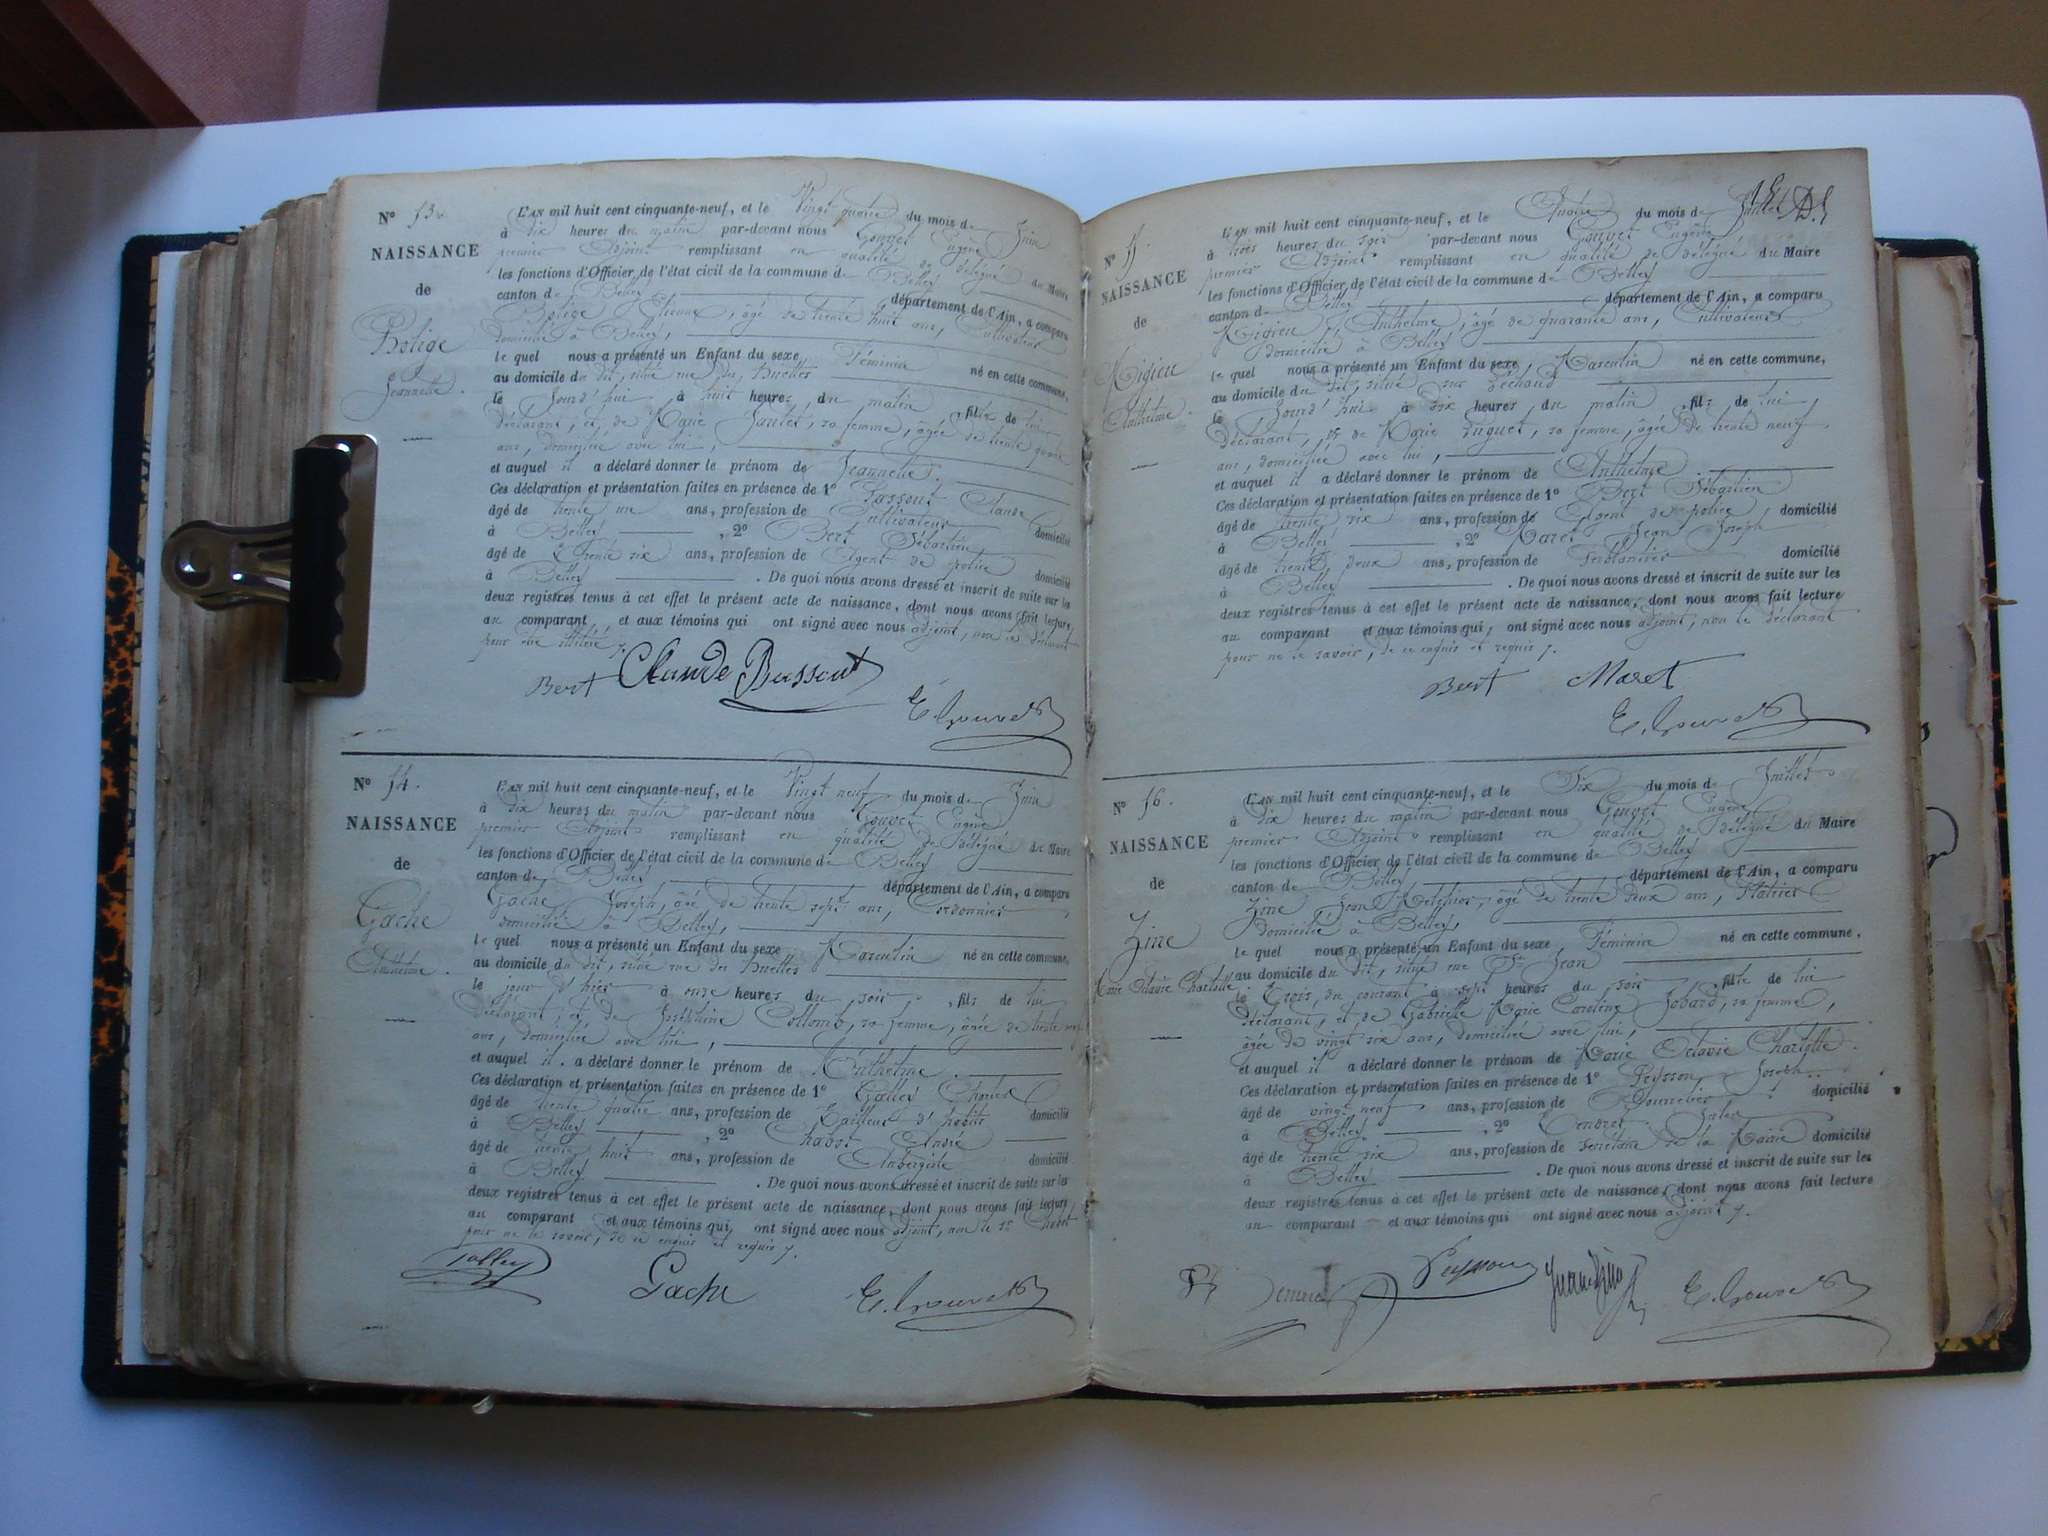 N° 53.
NAISSANCE
de
Bolige
Jeannette.
L'AN mil huit cent cinquante-neuf, et le Vingt quatre du mois de Juin
à dix heures du matin par-devant nous Gouvet Eugène
premier Adjoint remplissant en qualité de délégué du Maire
les fonctions d'Officier de l'état civil de la commune de Belley
canton de Belley département de l'Ain, a comparu
Bolige Etienne, âgé de trente huit ans, Cultivateur
domicilié à Belley,
le quel nous a présenté un Enfant du sexe Féminin né en cette commune,
au domicile du dit, situé rue des Huelles
le jour d'hui à huit heures du matin, fille de lui
déclarant, et de Marie Jantet, sa femme, âgée de trente quatre
ans, domiciliée avec lui,
et auquel il a déclaré donner le prénom de Jeannette.
Ces déclaration et présentation faites en présence de 1° Claude
âgé de trente un ans, profession de Cultivateur domicilié
à Belley, 2° Bert Sébastien
âgé de trente six ans, profession de Agent de police domicilié
à Belley. De quoi nous avons dressé et inscrit de suite sur les
deux registres tenus à cet effet le présent acte de naissance, dont nous avons fait lecture
au comparant, et aux témoins qui ont signé avec nous adjoint, non le déclarant
pour être illitéré
Bert Claude Bussout
E. Gouvet
N° 54.
NAISSANCE
de
Gache
Anthelme.
L'AN mil huit cent cinquante-neuf, et le Vingt neuf du mois de Juin
à dix heures du matin par-devant nous Gouvet Eugène
premier Adjoint remplissant en qualité de délégué du Maire
les fonctions d'Officier de l'état civil de la commune de Belley
canton de Belley département de l'Ain, a comparu
Gache Joseph, âgé de trente sept ans, Cordonnier
domicilié à Belley,
le quel nous a présenté un Enfant du sexe Masculin né en cette commune,
au domicile du dit, situé rue des Huelles
le jour d'hier à onze heures du soir, fils de lui
déclarant, et de Joséphine Collomb, sa femme, âgée de trente
ans, domiciliée avec lui,
et auquel il a déclaré donner le prénom de Anthelme.
Ces déclaration et présentation faites en présence de 1° Galley Charles
âgé de trente quatre ans, profession de Tailleur d'habits domicilié
à Belley, 2° Chabot André
âgé de trente huit ans, profession de Aubergiste domicilié
à Belley. De quoi nous avons dressé et inscrit de suite sur les
deux registres tenus à cet effet le présent acte de naissance, dont nous avons fait lecture
au comparant et aux témoins qui, ont signé avec nous adjoint, non le Sr Chabot
pour ne le savoir, de ce enquis et requis
Galley Gache E. Gouvet
N° 55.
NAISSANCE
de
Migieu
Anthelme.
L'AN mil huit cent cinquante-neuf, et le Quatre du mois de Juillet
à trois heures du soir par-devant nous Gouvet Eugène
premier Adjoint remplissant en qualité de délégué du Maire
les fonctions d'Officier de l'état civil de la commune de Belley
canton de Belley département de l'Ain, a comparu
Migieu Anthelme, âgé de quarante ans, Cultivateur
domicilié à Belley
le quel nous a présenté un Enfant du sexe Masculin né en cette commune,
au domicile du dit, situé sur Léchaud
le jour d'hui à dix heures du matin, fils de lui,
déclarant, et de Marie Luguet, sa femme, âgée de trente neuf
ans, domiciliée avec lui,
et auquel il a déclaré donner le prénom de Anthelme
Ces déclaration et présentation faites en présence de 1° Bert Sébastien
âgé de trente six ans, profession de Agent de police domicilié
à Belley, 2° Maret Jean Joseph
âgé de trente deux ans, profession de Ferblantier domicilié
à Belley. De quoi nous avons dressé et inscrit de suite sur les
deux registres tenus à cet effet le présent acte de naissance, dont nous avons fait lecture
au comparant et aux témoins qui, ont signé avec nous adjoint, non le déclarant
pour ne le savoir, de ce enquis et requis
Bert Maret
E. Gouvet
N° 56.
NAISSANCE
de
Zine
Marie Octavie Charlotte
L'AN mil huit cent cinquante-neuf, et le Six du mois de Juillet
à dix heures du matin par-devant nous Gouvet Eugène
premier Adjoint remplissant en qualité de délégué du Maire
les fonctions d'Officier de l'état civil de la commune de Belley
canton de Belley département de l'Ain, a comparu
Zine Jean Melchior, âgé de trente deux ans, Plâtrier
domicilié à Belley,
le quel nous a présenté un Enfant du sexe Féminin né en cette commune,
au domicile du dit, situé rue St Jean
le trois du courant à sept heures du soir fille de lui
déclarant, et de Gabrielle Marie Caroline Jobard, sa femme,
âgée de vingt six ans, domiciliée avec lui,
et auquel il a déclaré donner le prénom de Marie Octavie Charlotte.
Ces déclaration et présentation faites en présence de 1° Peysson Joseph
âgé de vingt neuf ans, profession de domicilié
à Belley, 2° Jules
âgé de trente six ans, profession de Secrétaire de la Mairie domicilié
à Belley. De quoi nous avons dressé et inscrit de suite sur les
deux registres tenus à cet effet le présent acte de naissance, dont nous avons fait lecture
au comparant et aux témoins qui ont signé avec nous adjoint
Peysson E. Gouvet